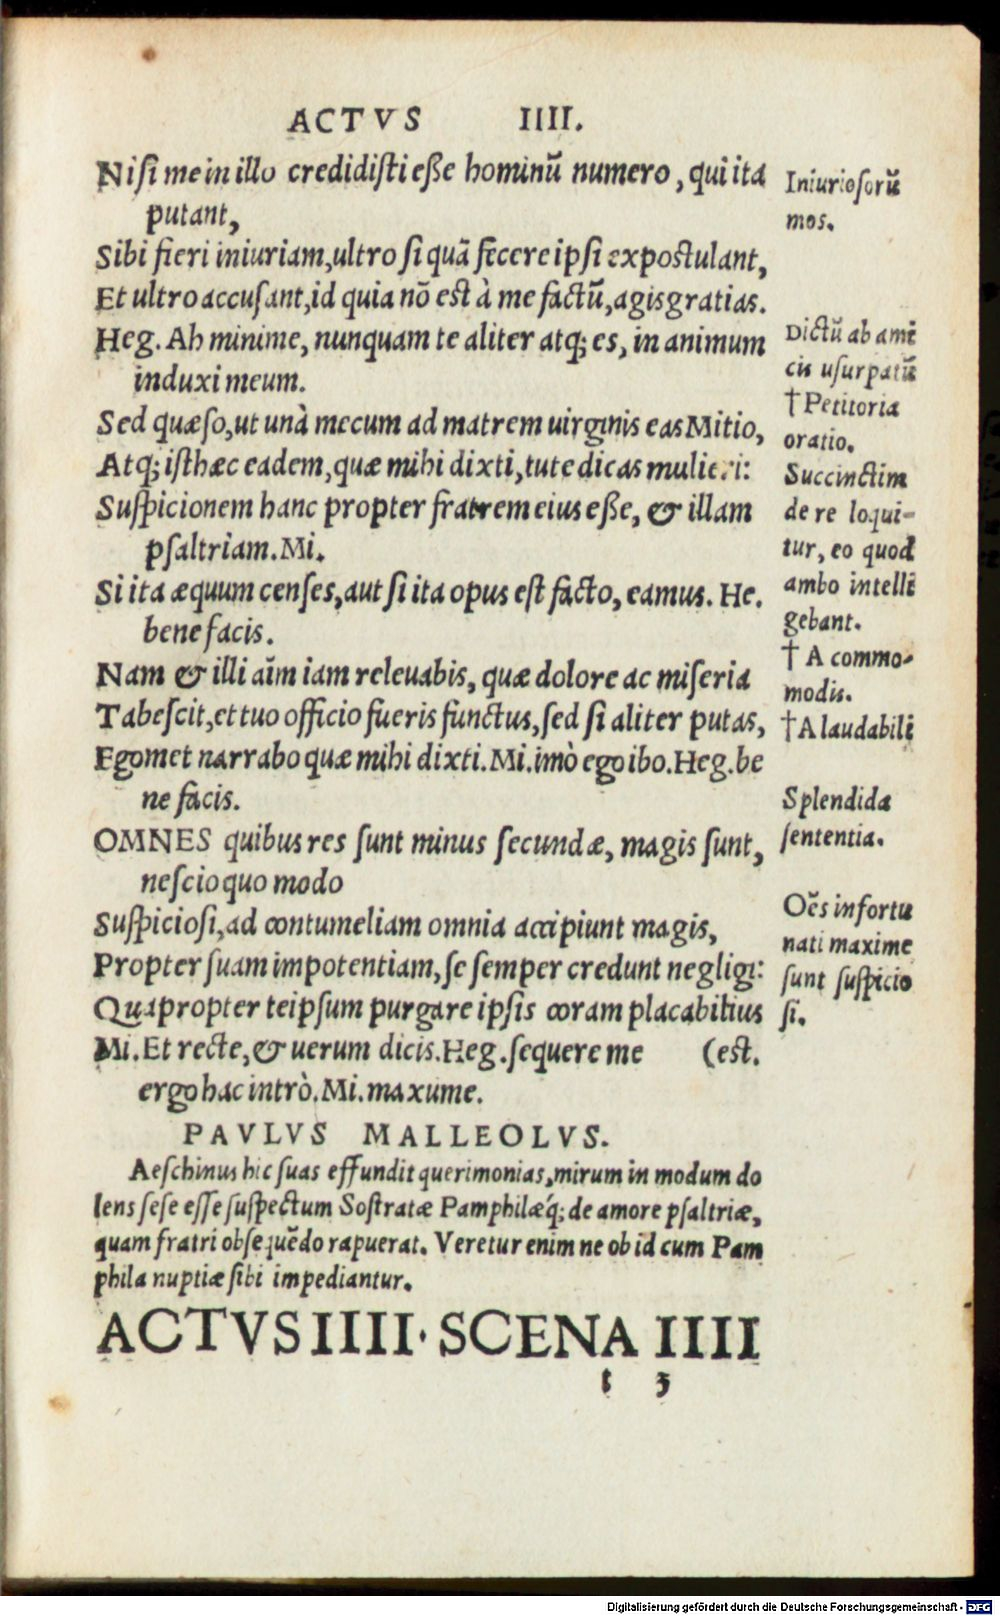 ACTVS IIII.
Nisi me in illo credidisti eße hominũ numero, qui ita
putant,
Sibi fieri iniuriam, ultro si quã fecere ipsi expostulant,
Et ultro accusant, id quia nõ est à me factũ, agis gratias.
Heg. Ah minime, nunquam te aliter atq; es, in animum
induxi meum.
Sed quæso, ut unà mecum ad matrem uirginis eas Mitio,
Atq; isthæc eadem, quæ mihi dixti, tute dicas mulieri:
Suspicionem hanc propter fratrem eius eße, & illam
psaltriam. Mi.
Si ita æquum censes, aut si ita opus est facto, eamus. He.
bene facis.
Nam & illi aĩm iam releuabis, quæ dolore ac miseria
Tabescit, et tuo officio fueris functus, sed si aliter putas,
Egomet narrabo quæ mihi dixti. Mi. imò ego ibo. Heg. be
ne facis.
OMNES quibus res sunt minus secundæ, magis sunt,
nescio quo modo
Suspiciosi, ad contumeliam omnia accipiunt magis,
Propter suam impotentiam, se semper credunt negligi:
Quapropter teipsum purgare ipsis coram placabilius
Mi. Et recte, & uerum dicis. Heg. sequere me (est.
ergo hac intrò. Mi. maxume.
PAVLVS MALLEOLVS.
Aeschinus hic suas effundit querimonias, mirum in modum do
lens sese esse suspectum Sostratæ Pamphilæq́; de amore psaltriæ,
quam fratri obsequẽdo rapuerat. Veretur enim ne ob id cum Pam
phila nuptiæ sibi impediantur.
ACTVS IIII. SCENA IIII
t 3
Iniuriosorũ
mos.
Dictũ ab amĩ
cis usurpatũ
† Petitoria
oratio.
Succinctim
de re loqui-
tur, eo quod
ambo intellĩ
gebant.
† A commo-
modis.
† A laudabilĩ
Splendida
sententia.
Oẽs infortu
nati maxime
sunt suspicio
si.
Digitalisierung gefördert durch die Deutsche Forschungsgemeinschaft - DFG